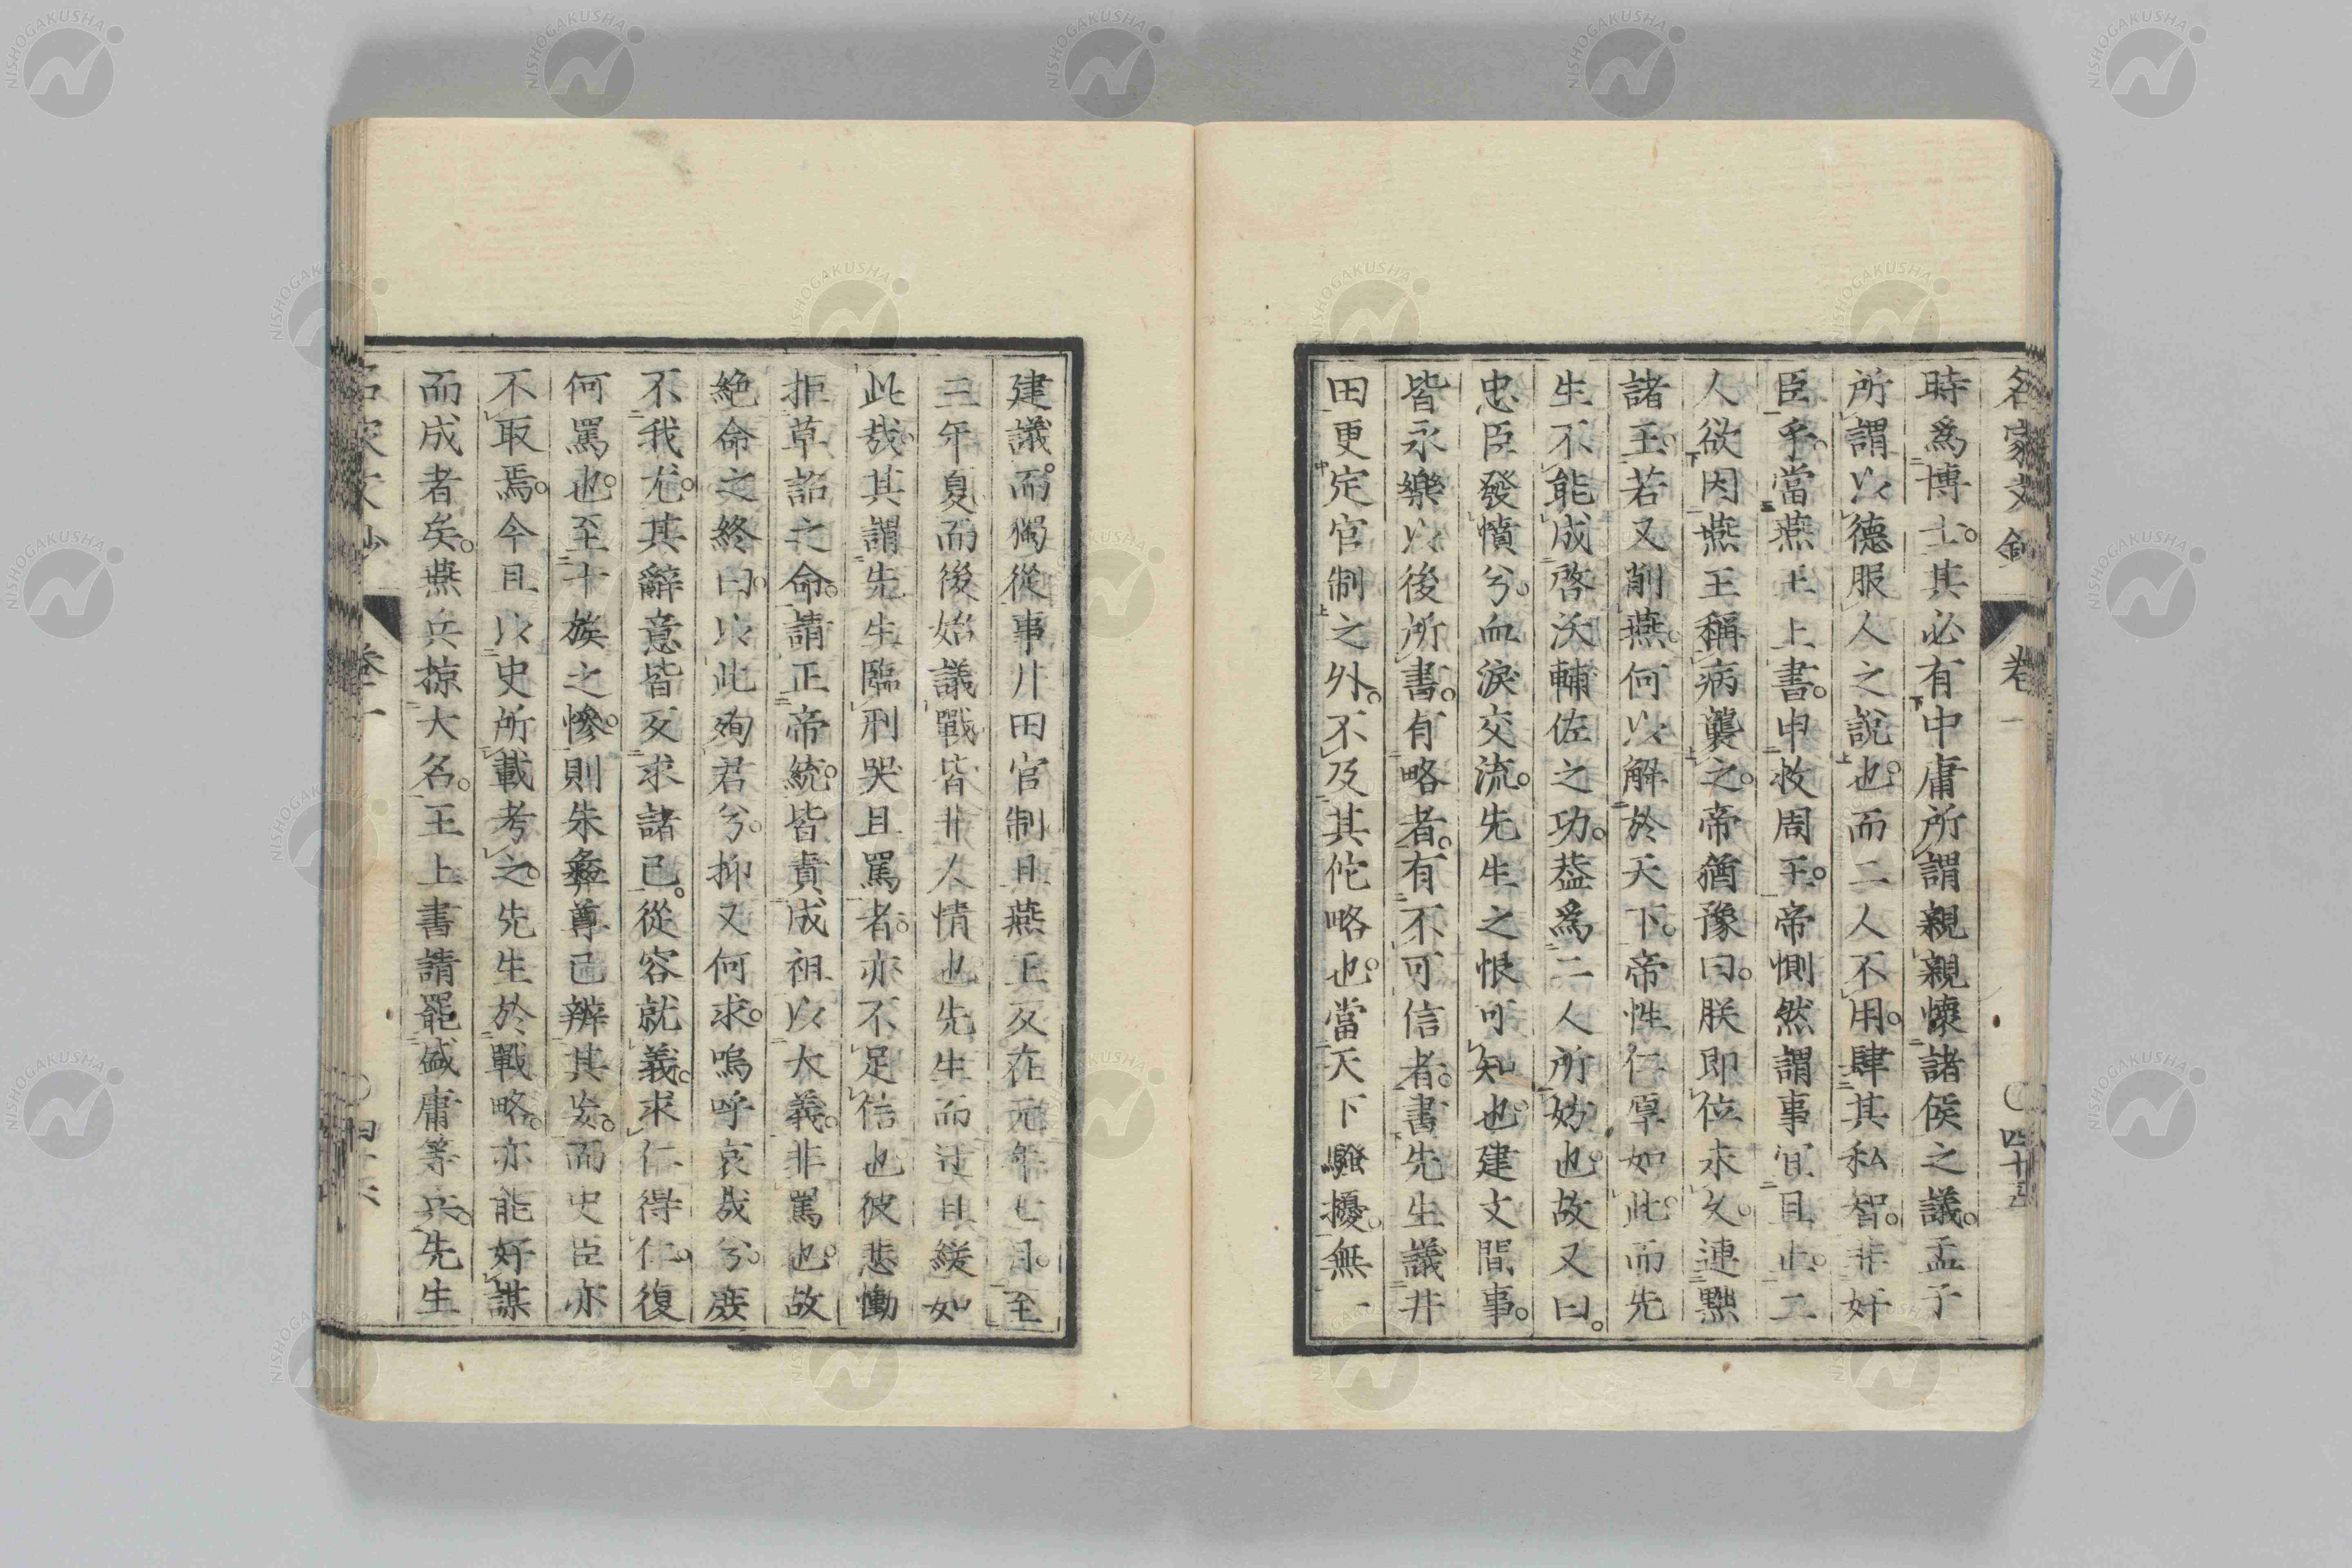 名家文鈔 卷一 〇四十五
時爲博士。其必有中庸所謂親親懷諸侯之議。孟子
所謂以德服人之說也。而二人不用。肆其私智。非奸
臣乎。當燕王上書。申救周王。帝惻然謂事宜且止。二
人欲因燕王稱病襲之。帝猶豫曰。朕即位未久。連黜
諸王。若又削燕。何以解於天下。帝性仁厚如此。而先
生不能成啓沃輔佐之功。葢爲二人所妨也。故又曰。
忠臣發憤兮。血淚交流。先生之恨可知也。建文間事。
皆永樂以後所書。有略者。有不可信者。書先生議井
田更定官制之外。不及其佗略也。當天下騷擾。無一
建議。而獨從事井田官制。且燕王反在元年七月。至
三年夏而後始議戰。皆非人情也。先生而迂且緩如
此哉。其謂先生臨刑哭且罵者。亦不足信也。彼悲慟
拒草詔之命。請正帝統。皆責成祖以大義。非罵也。故
絶命之終曰。以此殉君兮。抑又何求。嗚呼哀哉兮。庶
不我尤。其辭意皆反求諸己。從容就義。求仁得仁。復
何罵也。至十族之慘。則朱彝尊已辨其妄。而史臣亦
不取焉。今且以史所載考之。先生於戰略。亦能好謀
而成者矣。燕兵掠大名。王上書請罷盛庸等兵。先生
名家文鈔 卷一 〇四十六